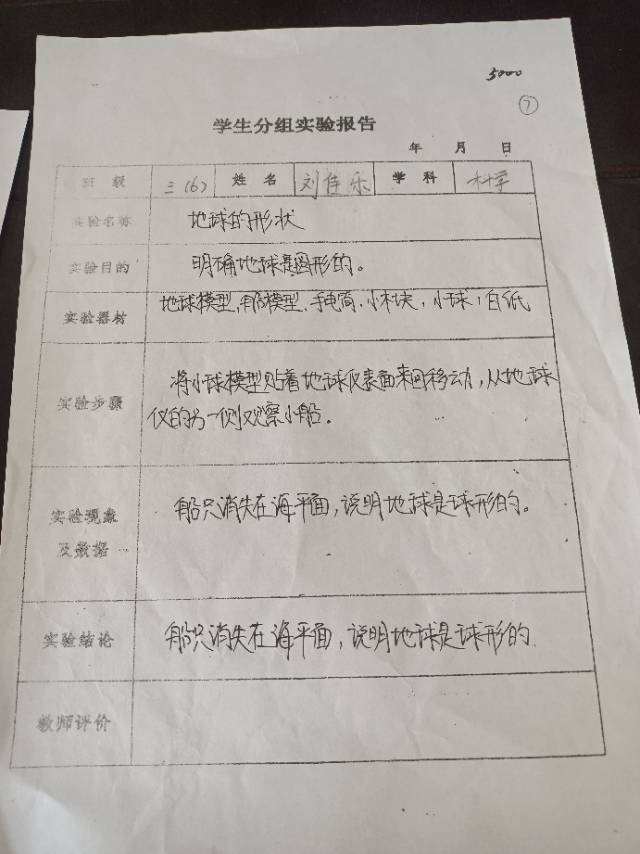 5000
7
学生分组实验报告
年 月 日
班 级 三(6) 姓 名 刘佳乐 学 科 科学
实验名称 地球的形状
实验目的 明确地球是圆形的。
实验器材 地球模型,船模型,手电筒,小木块,小球,白纸
将小球模型贴着地球仪表面来回移动,从地球
实验步骤
仪的另一侧观察小船。
实验现象 船只消失在海平面,说明地球是球形的。
及数据
实验结论 船只消失在海平面,说明地球是球形的
教师评价